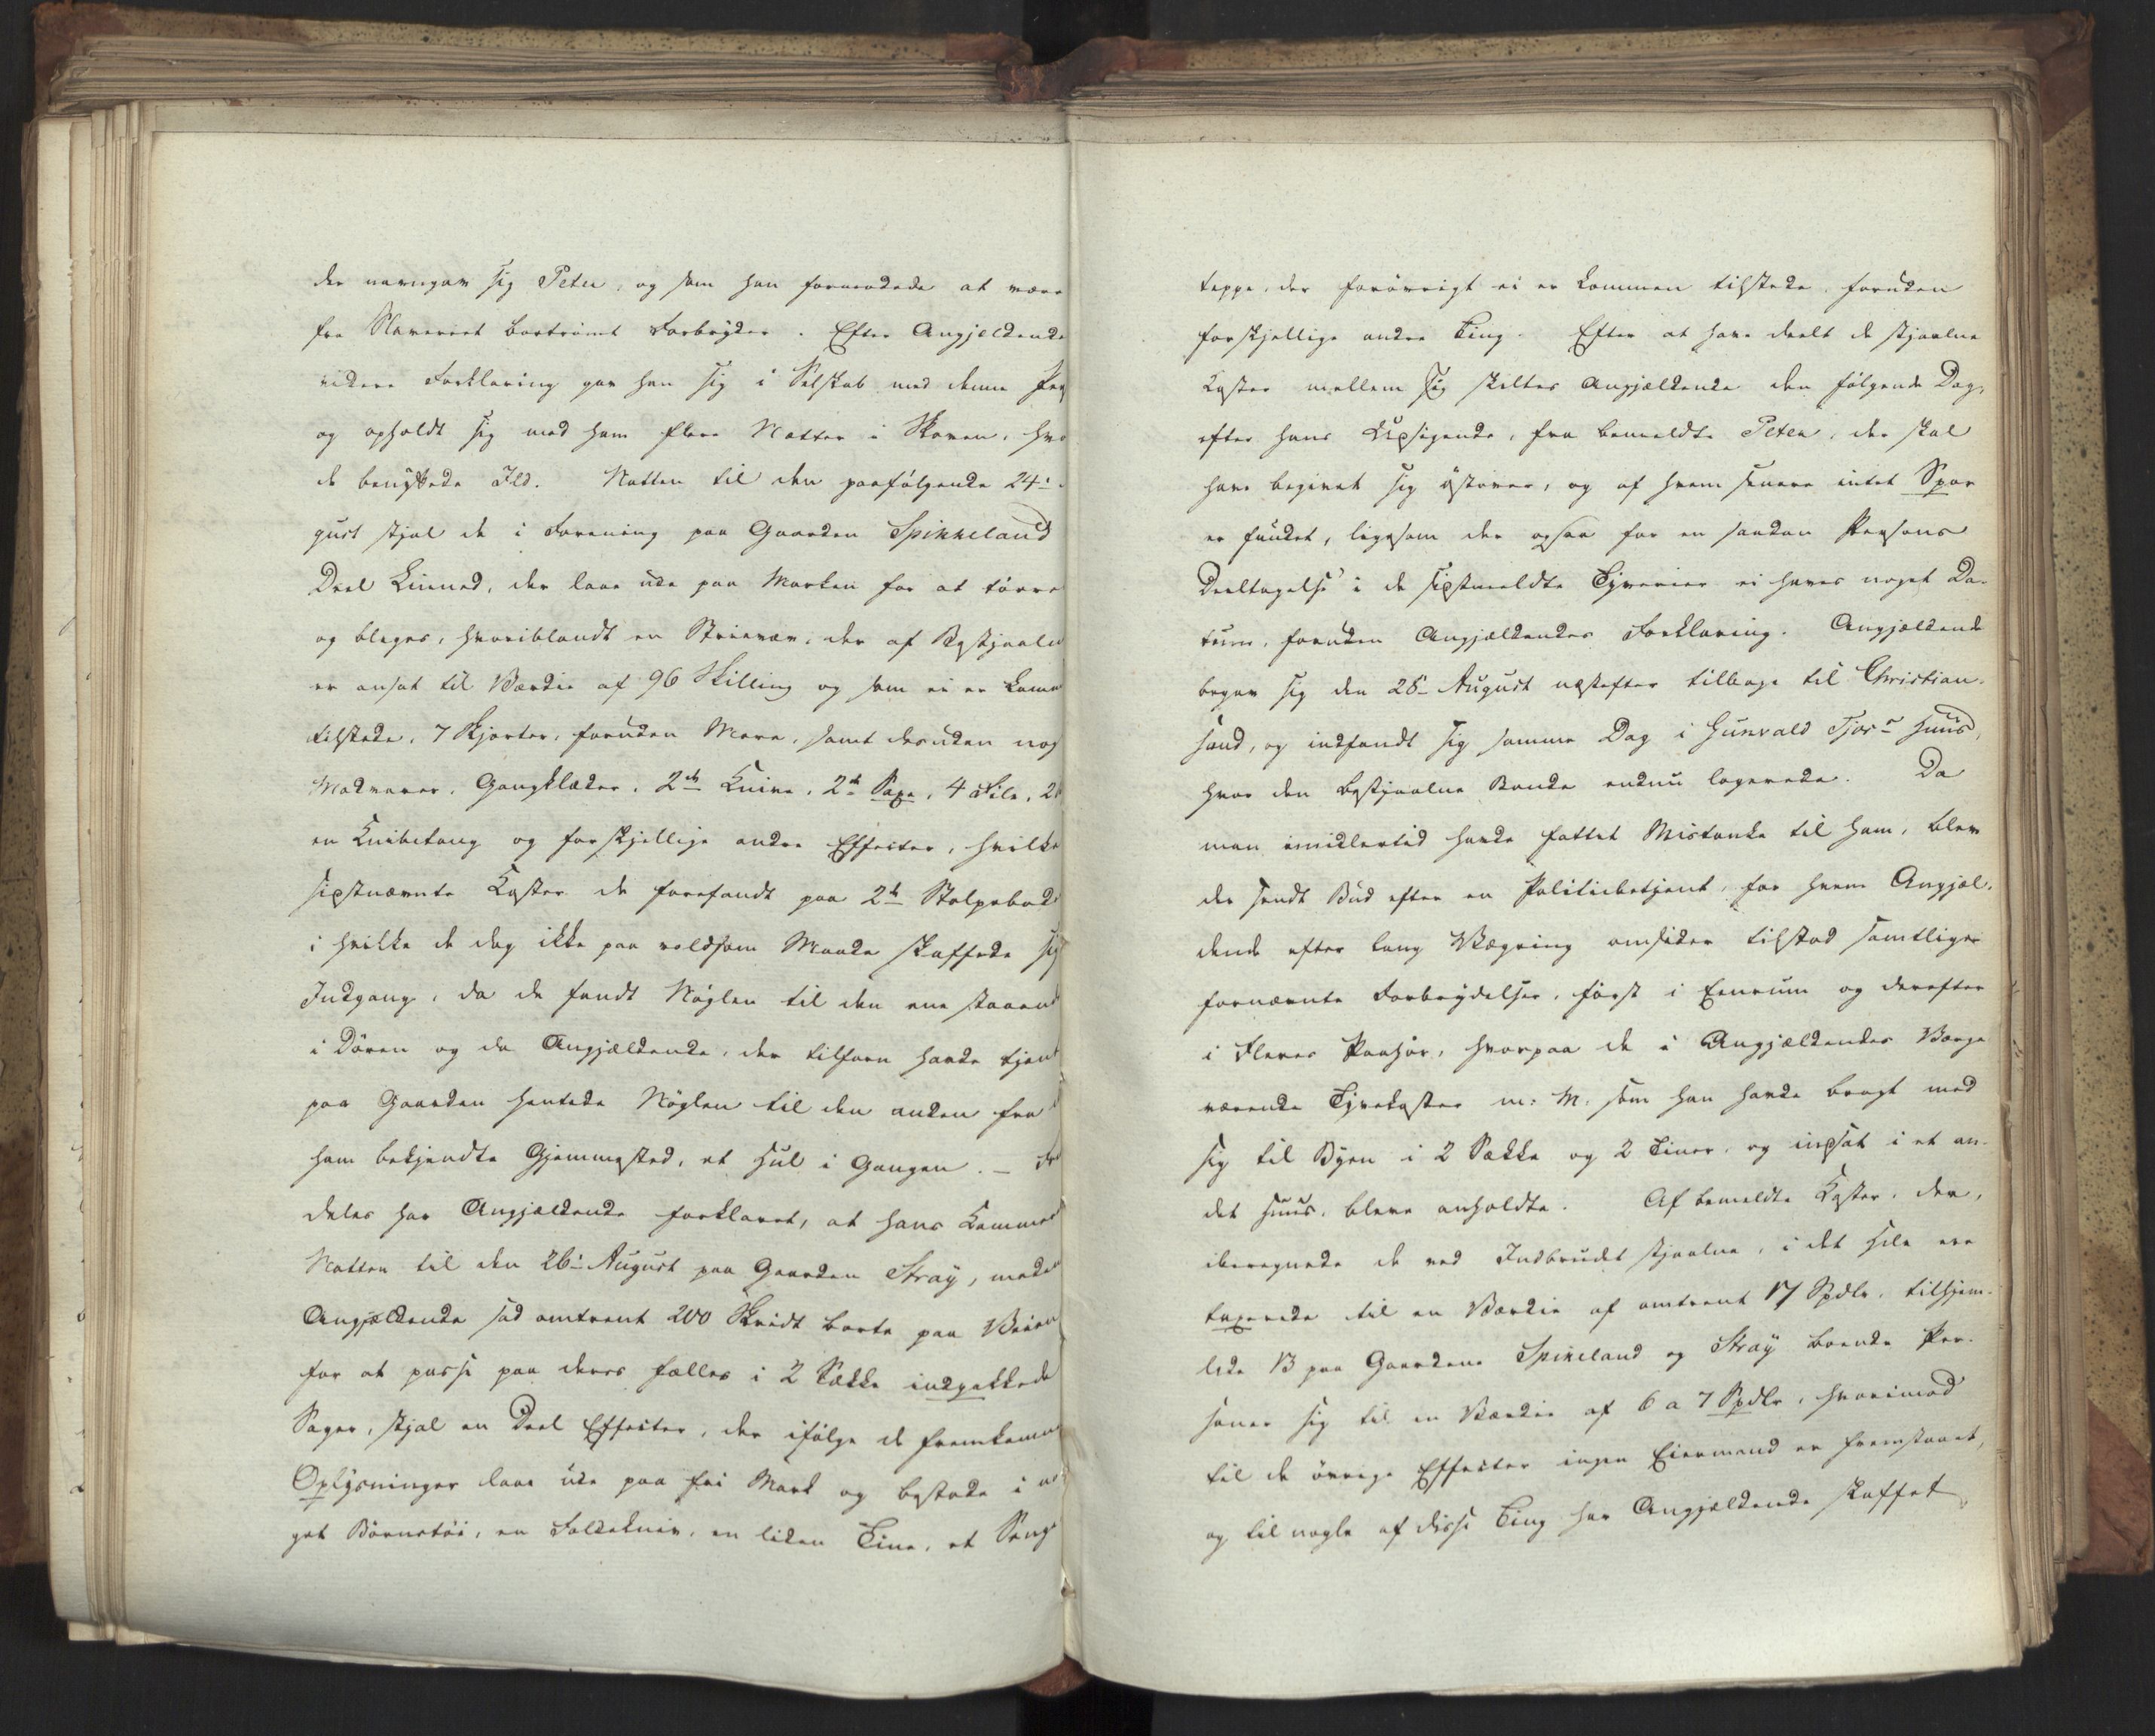 der navngav sig Peter, og som han formodede at være
fra Slaveriet bortrømt Forbryder. Efter Angjeldende
videre Forklaring gav han sig i Selskab med denne Per
og opholdt sig med ham flere Nætter i Skoven, hvo
de benyttede Ild. Natten til den paafølgende 24.
gust stjal de i Forening paa Gaarden Spikkeland
Deel Linned, der laae ude paa Marken for at tørre
og bleges, hvoriblandt en Strievæv, der af Bestjaalen
er ansat til Værdie af 96 Skilling og som ei er komm
tilstede, 7 Skjorter, foruden Mere, samt desuden nog
Madvarer, Gangklæder, 2de Knive, 2de Saxe, 4 File, 2
en Knibetang og forskjellige andre Effecter, hvilke
sidstnævnte Koster de forefandt paa 2de Stolpebode
i hvilke de dog ikke paa voldsom Maade skaffede sig
Indgang, da de fandt Nøglen til den ene staaend
i Døren og da Angjældende, der tilforn havde tjent
paa Gaarden hentede Nøglen til den anden fra
ham bekjendte Gjemmested, et Hul i Gangen. –
deles har Angjældende forklaret, at hans Kammer
Natten til den 26. August paa Gaarden Straÿ, meden
Angjældende sad omtrent 200 Skridt borte paa Veien
for at passe paa deres fælles i 2 Sække indpakkede
Sager, stjal en Deel Effecter, der ifølge de fremkomn
Oplysninger laae ude paa fri Mark og bestode i no
get Børnetøi, en Foldekniv, en liden Tine, et Senge
teppe, der forøvrigt ei er kommen tilstede, foruden
forskjellige andre Ting. Efter at have deelt de stjaalne
Koster mellem sig skiltes Angjældende den følgende Dag,
efter hans Udsigende, fra bemeldte Peter, der skal
have begivet sig østover, og af hvem senere intet Spor
er fundet, ligesom der ogsaa for en saadan Persons
Deeltagelse i de sidstmeldte Tyverier ei haves noget Da-
tum, foruden Angjældendes Forklaring. Angjældende
begav sig den 28. August næstefter tilbage til Christian-
sand, og indfandt sig samme Dag i Gunvald Tjors Huus,
hvor den bestjaalne Bonde endnu logerede. Da
man imidlertid havde fattet Mistanke til ham, blev
der sendt Bud efter en Politiebetjent, for hvem Angjæl-
dende efter lang Vægring omsider tilstod samtlige
fornævnte Forbrydelser, først i Eenrum og derefter
i Fleres Paahør, hvorpaa de i Angjældendes Værge
værende Tyvekoster m: M. som han havde bragt med
sig til Byen i 2 Sække og 2 Tiner, og indsat i et an-
det Huus, bleve anholdte. Af bemeldte Koster, der,
iberegnede de ved Indbrudet stjaalne, i det Hele ere
taxerede til en Værdie af omtrent 17 Spdlr, tilhjem-
lede 13 paa Gaardene Spikeland og Straÿ boende Per-
soner sig til en Værdie af 6 a 7 Spdlr, hvorimod
til de øvrige Effecter ingen Eiermand er fremstaaet,
og til nogle af disse Ting har Angjældende skaffet